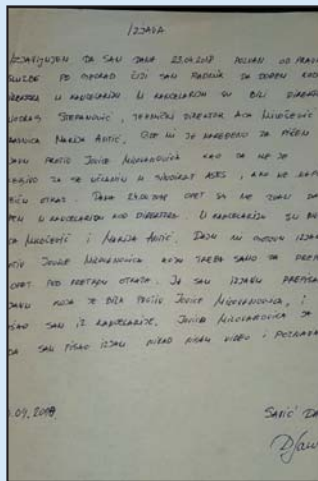 IZJAVA
IZJAVLJUJEM DA SAM DANA 23.04.2018 POZVAN OD PRAVNE
SLUŽBE PD BEOGRAD ČIJI SAM RADNIK DA DOĐEM KOD
DIREKTORA U KANCELARIJU. U KANCELARIJI SU BILI DIREKTOR
STEPANOVIĆ, TEHNIČKI DIREKTOR ACA MILOŠEVIĆ
MARIJA ANTIĆ, GDE MI JE NAREĐENO DA PIŠEM
PROTIV JOVICE MILOVANOVIĆA KAO DA ME JE
DA SE UČLANIM U SINDIKAT ASES, AKO NE NAPIŠEM
OTKAZ. DANA 24.04.2018 OPET SU ME ZVALI DA
U KANCELARIJU KOD DIREKTORA. U KANCELARIJI SU BILI
MILOŠEVIĆ I MARIJA ANTIĆ. DAJU MI GOTOVU IZJAVU
JOVICE MILOVANOVIĆA KOJU TREBA SAMO DA
OPET POD PRETNJOM OTKAZA. JA SAM IZJAVU
KOJA JE BILA PROTIV JOVICE MILOVANOVIĆA, I
SAM IZ KANCELARIJE. JOVICU MILOVANOVIĆA
DA SAM PISAO IZJAVU NIKAD NISAM VIDEO I
.09.2018
SAVIĆ